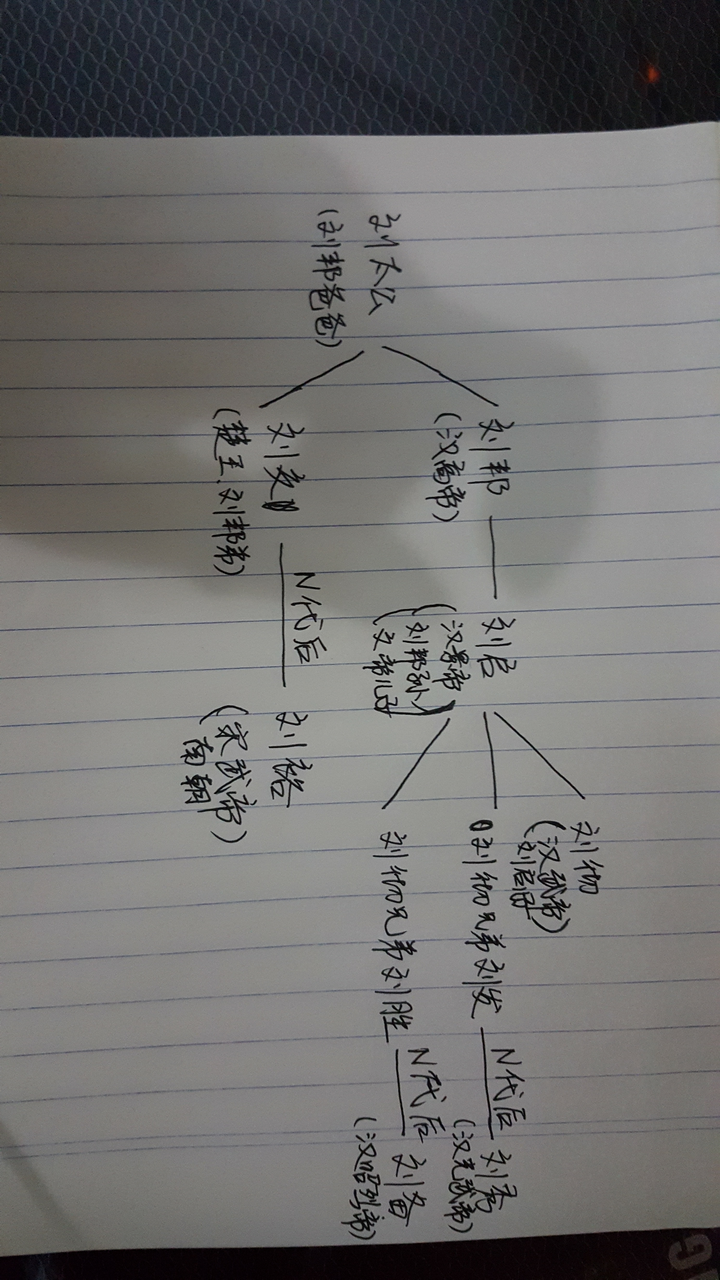 刘太公
(刘邦爸爸)
刘邦
(汉高帝)
刘启
(汉景帝
刘邦孙)
文帝儿子
刘彻
(汉武帝)
刘启子
刘彻兄弟刘发
N代后
刘秀
(汉光武帝)
刘彻兄弟刘胜
N代后
刘备
(汉昭烈帝)
刘交
(楚王、刘邦弟)
N代后
刘裕
(宋武帝)
南朝